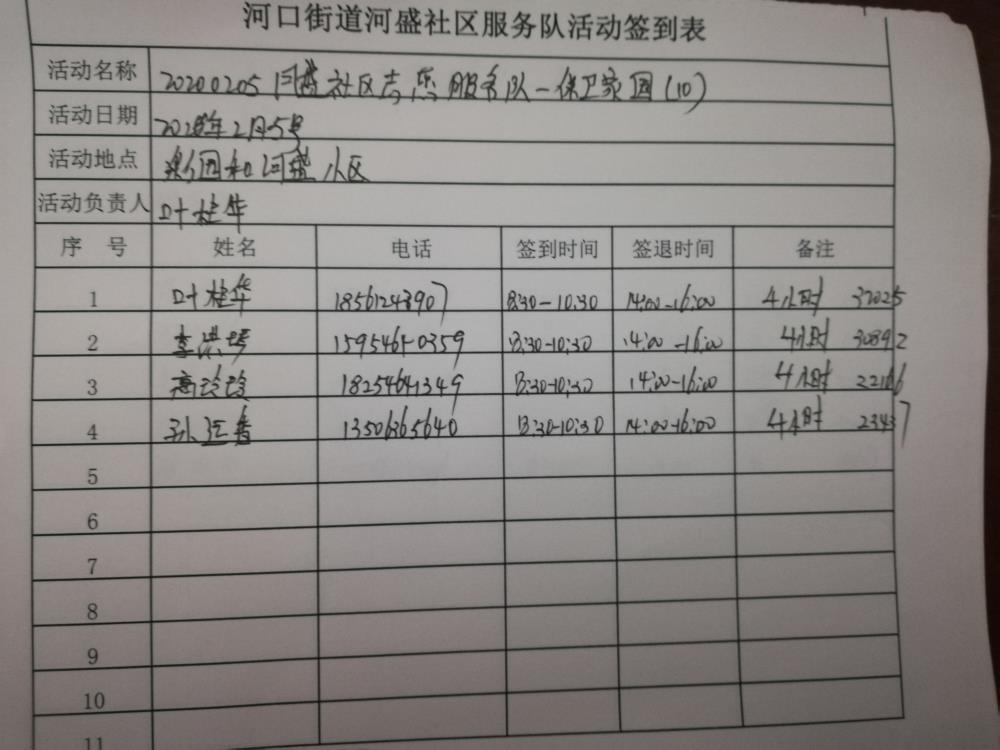 河口街道河盛社区服务队活动签到表
活动名称 20200205河盛社区志愿服务队—保卫家园(10)
活动日期 2020年2月5号
活动地点 河盛小区
活动负责人 叶桂华
序 号 姓名 电话 签到时间 签退时间 备注
1 叶桂华 18561243907 8:30-10:30 14:00-16:00 4小时 37025
2 李洪 15954610359 8:30-10:30 14:00-16:00 4小时 30892
3 高玲玲 18254641349 8:30-10:30 14:00-16:00 4小时 22166
4 孙 香 13506365640 8:30-10:30 14:00-16:00 4小时 23437
5
6
7
8
9
10
11